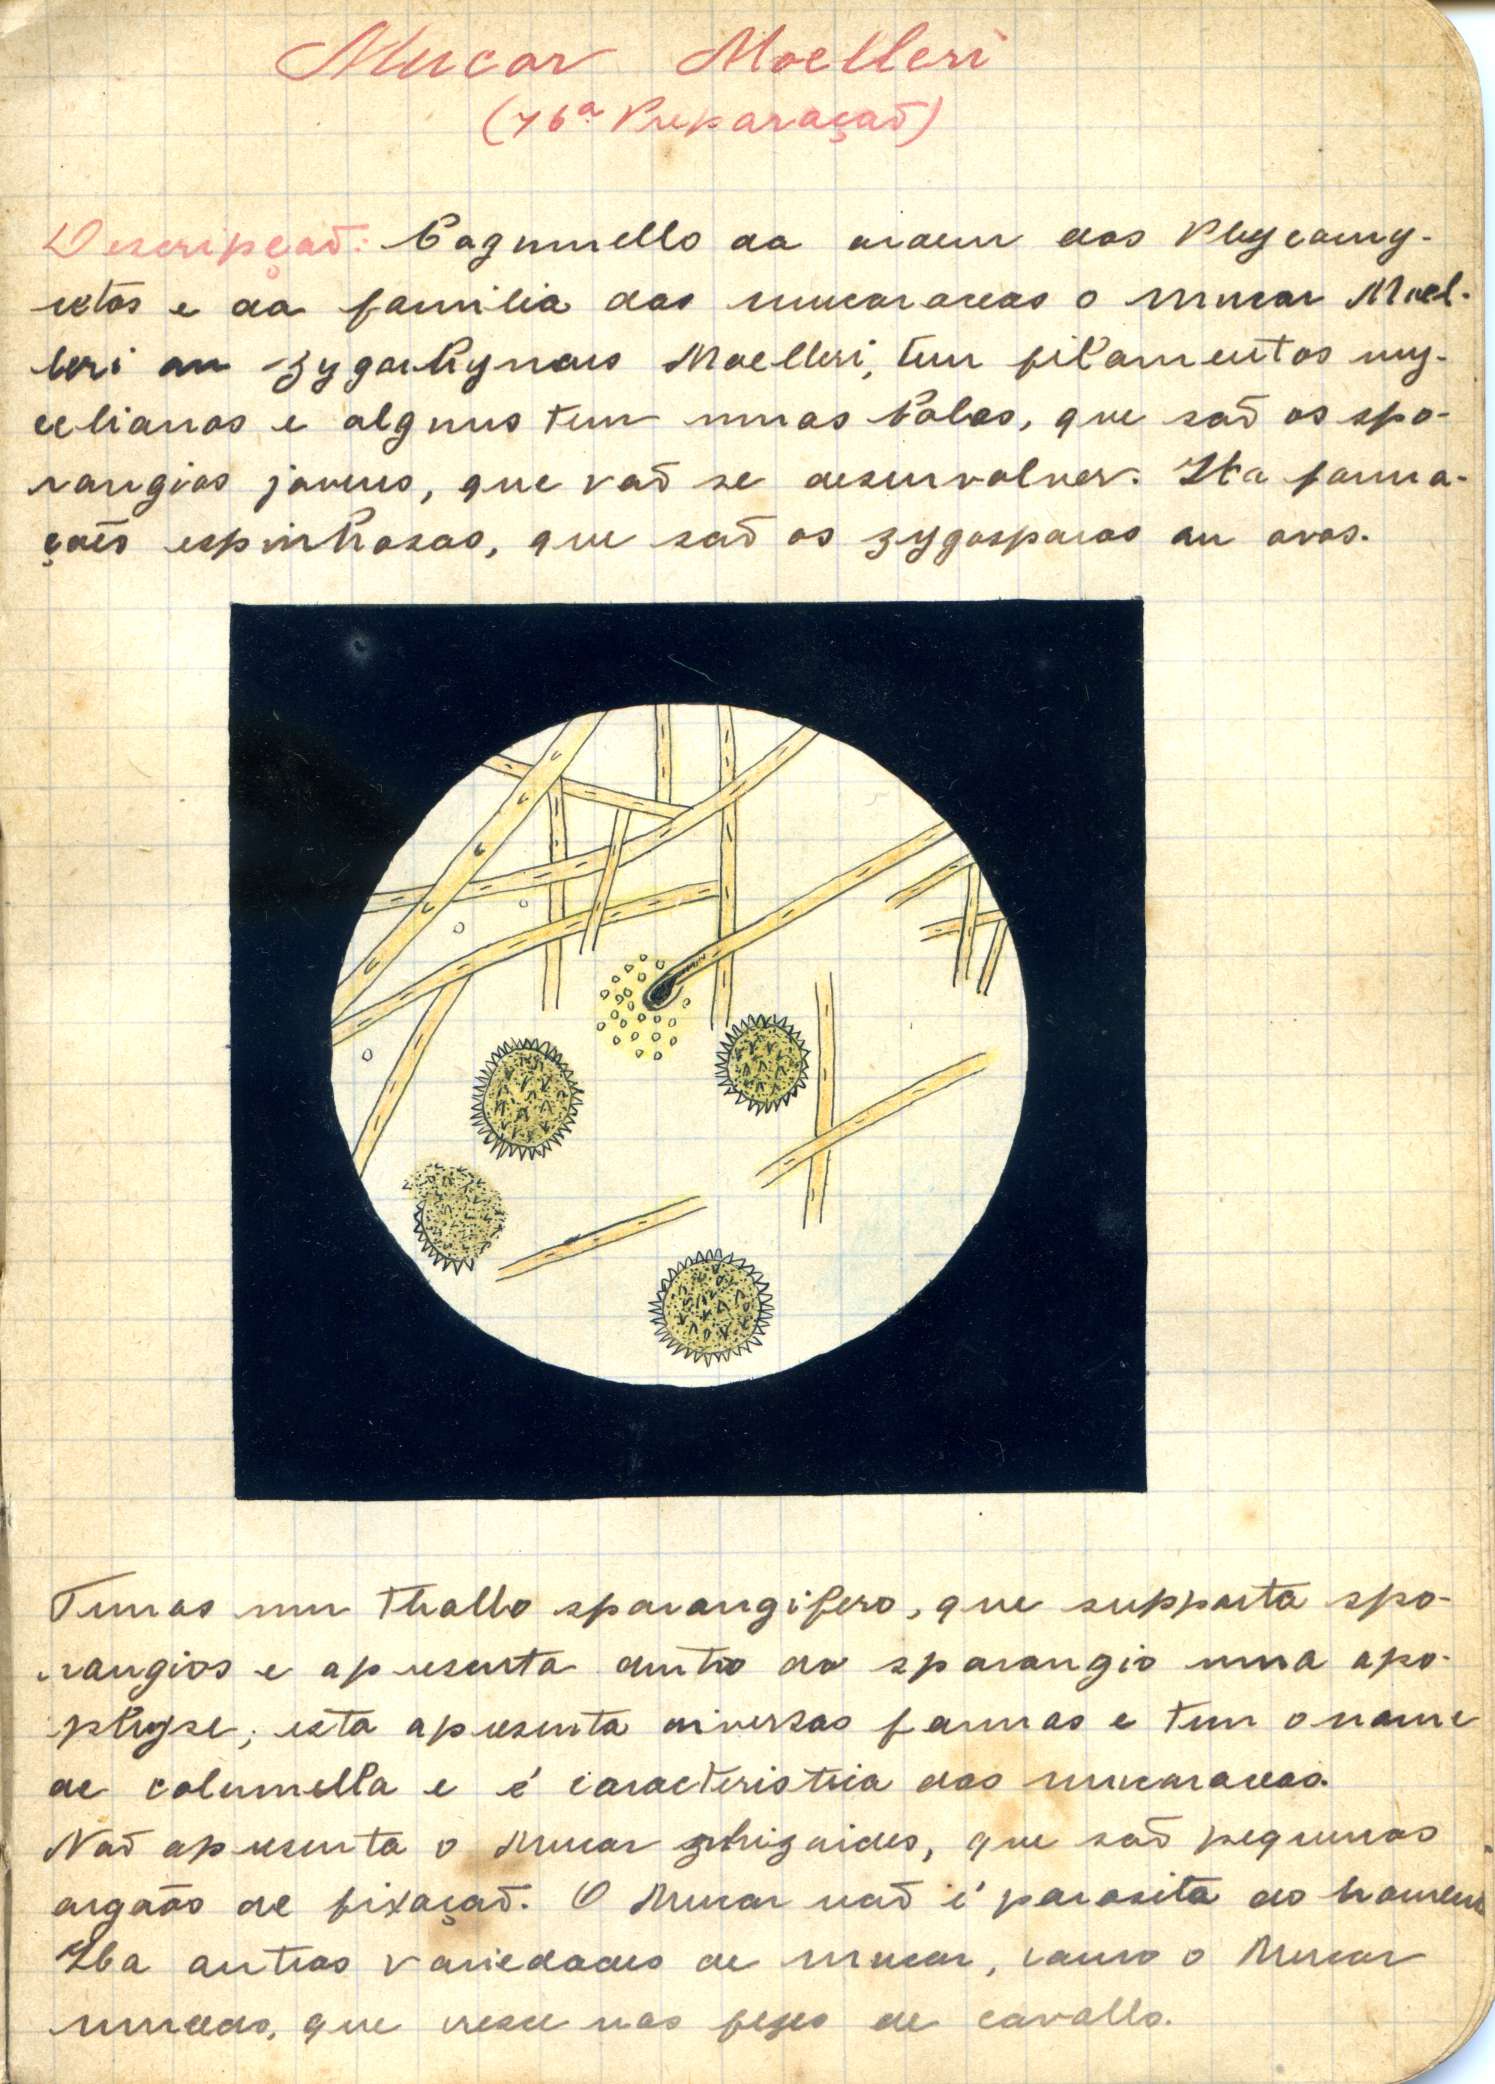 Mucor Moelleri
(76ª Preparação)
Descripção: Cogumello da ordem dos Phycomy-
cetos e da familia das mucoraceas o mucor Moel-
leri ou zygorhyncus Moelleri, tem filamentos my-
celianos e alguns tem umas bolas, que são os spo-
rangios jovens, que vão se desenvolver. Ha forma-
ções espinhosas, que são os zygosporos ou ovos.
Temos um thallo sporangifero, que supporta spo-
rangios e apresenta dentro do sporangio uma apo-
physe; esta apresenta diversas formas e tem o nome
de columella e é caracteristica das mucoraceas.
Não apresenta o Mucor rhizoides, que são pequenos
orgãos de fixação. O Mucor não é parasita do homem
Ha outras variedades de mucor, como o Mucor
mucedo, que cresce nas fezes de cavallo.